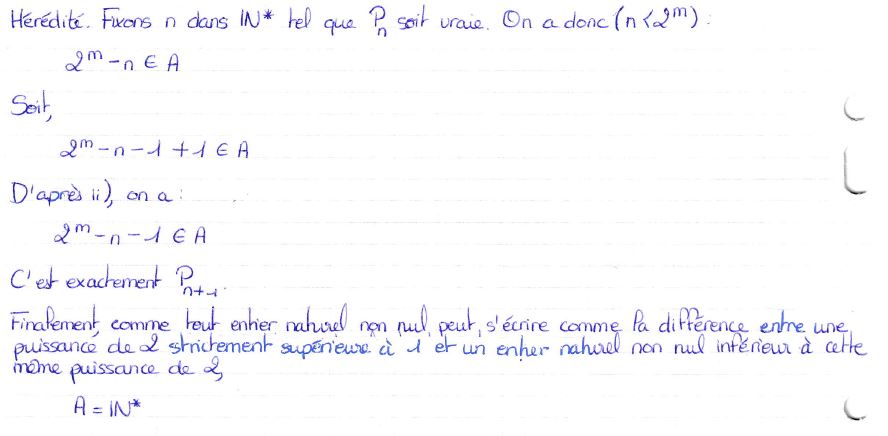 Hérédité. Fixons n dans IN* tel que Pn soit vraie. On a donc (n<2^m) :
2^m - n ∈ A
Soit,
2^m - n - 1 + 1 ∈ A
D'après ii), on a :
2^m - n - 1 ∈ A
C'est exactement Pn+1.
Finalement, comme tout entier naturel non nul peut s'écrire comme la différence entre une
puissance de 2 strictement supérieure à 1 et un entier naturel non nul inférieur à cette
même puissance de 2,
A = IN*